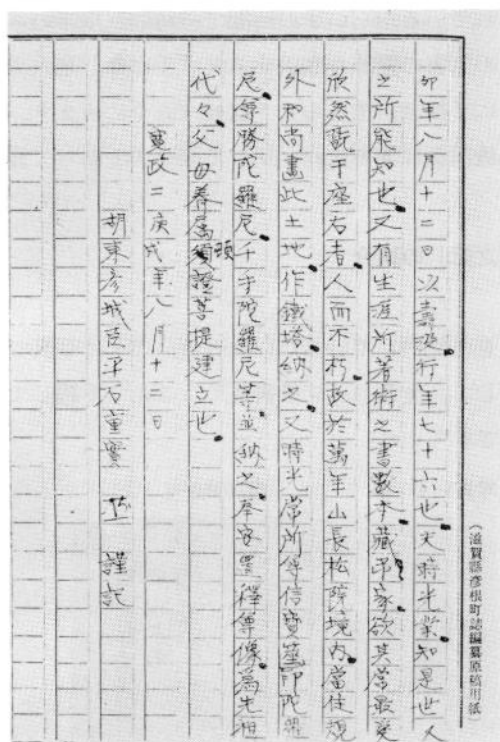 卯年八月十二日以壽逝行年七十六也夫時光業知是世人
之所能知也又有生涯所著術之書數本藏吊家欲其當最愛
欣然既于座右者人而不朽故於萬年山長松院境内當住規
外和尚畫此土地作鐵塔納之又時光常所俸信寶篋印陀羅
尼尊勝陀羅尼千手陀羅尼等並納之奉安置釋尊像為先祖
代々父母眷属須頓證菩提建立也
寛政二庚戌年八月十二日
胡東彦城臣平石重實 謹記
(滋賀縣彦根町誌編纂原稿用紙)